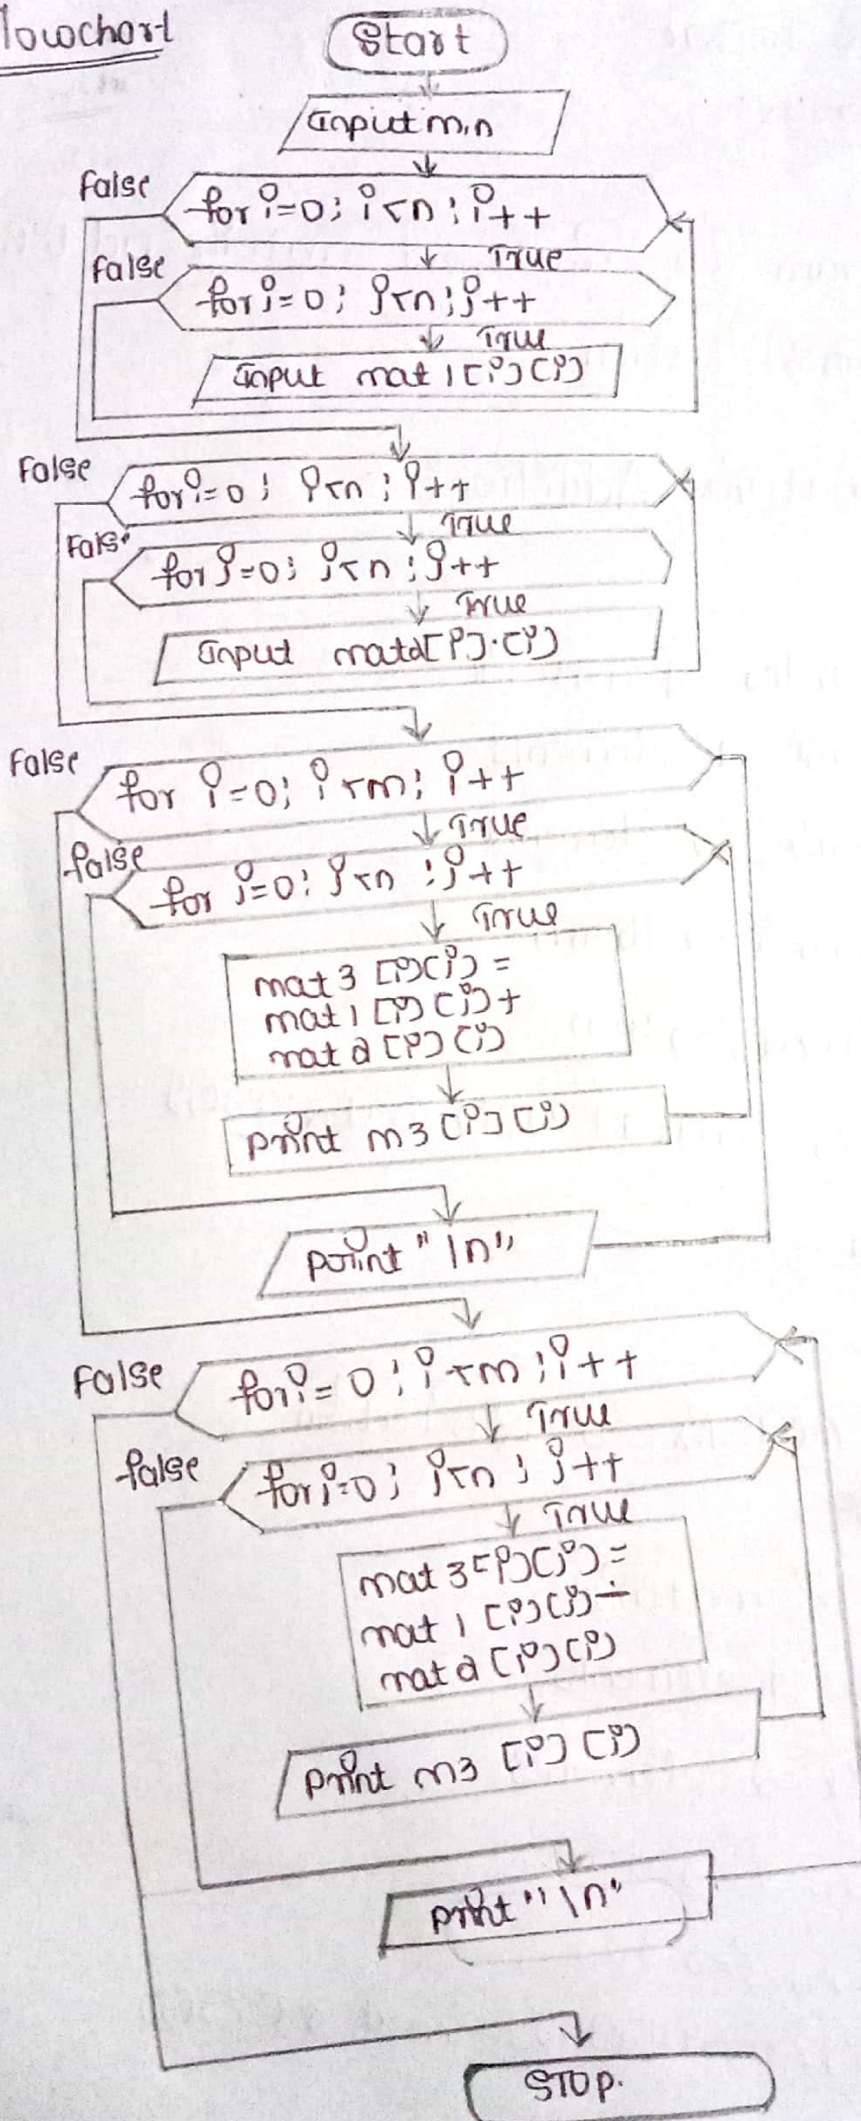 lowchart
Start
Input m,n
False
for i=0; i<n; i++
True
False
for j=0; j<n; j++
True
Input mat1[i][j]
False
for i=0; i<n; i++
True
False
for j=0; j<n; j++
True
Input mat2[i].[j]
False
for i=0; i<m; i++
True
false
for j=0; j<n; j++
True
mat3 [i][j] =
mat1 [i][j] +
mat2 [i][j]
print m3 [i][j]
print "\n"
False
for i=0; i<m; i++
True
false
for j=0; j<n; j++
True
mat3 [i][j] =
mat1 [i][j] ÷
mat2 [i][j]
print m3 [i][j]
print "\n"
STOP.